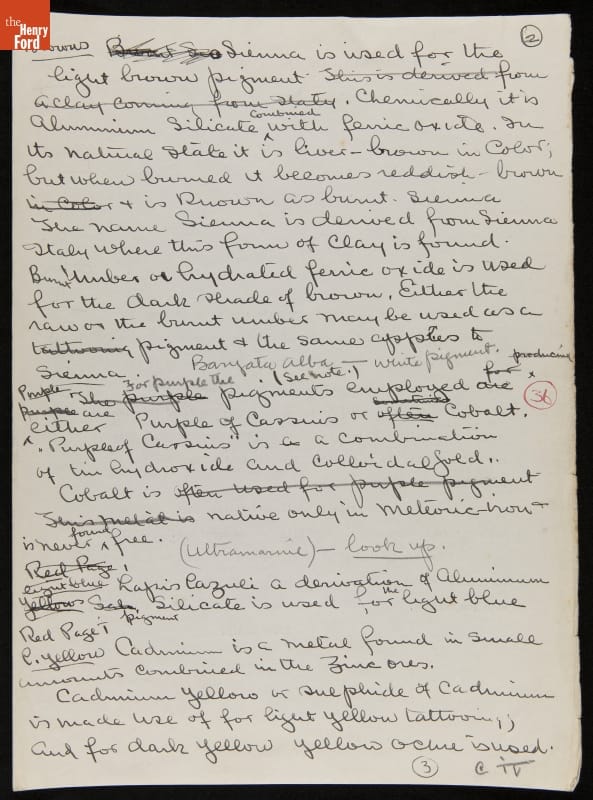 the
Henry
Ford
2
Browns Burnt Sie Sienna is used for the
light brown pigment. This is derived from
a clay coming from Italy. Chemically it is
combined
Aluminium Silicate with ferric oxide. In
its natural state it is liver-brown in color;
but when burned it becomes reddish-brown
in color & is known as burnt. Sienna
The name Sienna is derived from Sienna
Italy where this form of clay is found.
Burnt Umber or hydrated ferric oxide is used
for the dark shade of brown. Either the
raw or the burnt umber may be used as a
tattooing pigment & the same applies to
Sienna.
Baryata alba — white pigment.
(see note.)
Purple For purple the for producing
Purple The purple pigments employed are x
are 36
either Purple of Cassius or often Cobalt.
"Purple of Cassius" is a a combination
of tin hydroxide and colloidal gold..
Cobalt is often used for purple pigment
This metal is native only in meteoric-iron &
is never found free.
(Ultramarine) — look up.
Red Page!
light blue Lapis lazuli a derivation of Aluminum
Yellows Silicate is used for the light blue
pigment
Red Page!
L. yellow Cadmium is a metal found in small
amounts combined in the zinc ores.
Cadmium Yellow or sulphide of Cadmium
is made use of for light yellow tattooing;
and for dark yellow yellow ochre is used.
3